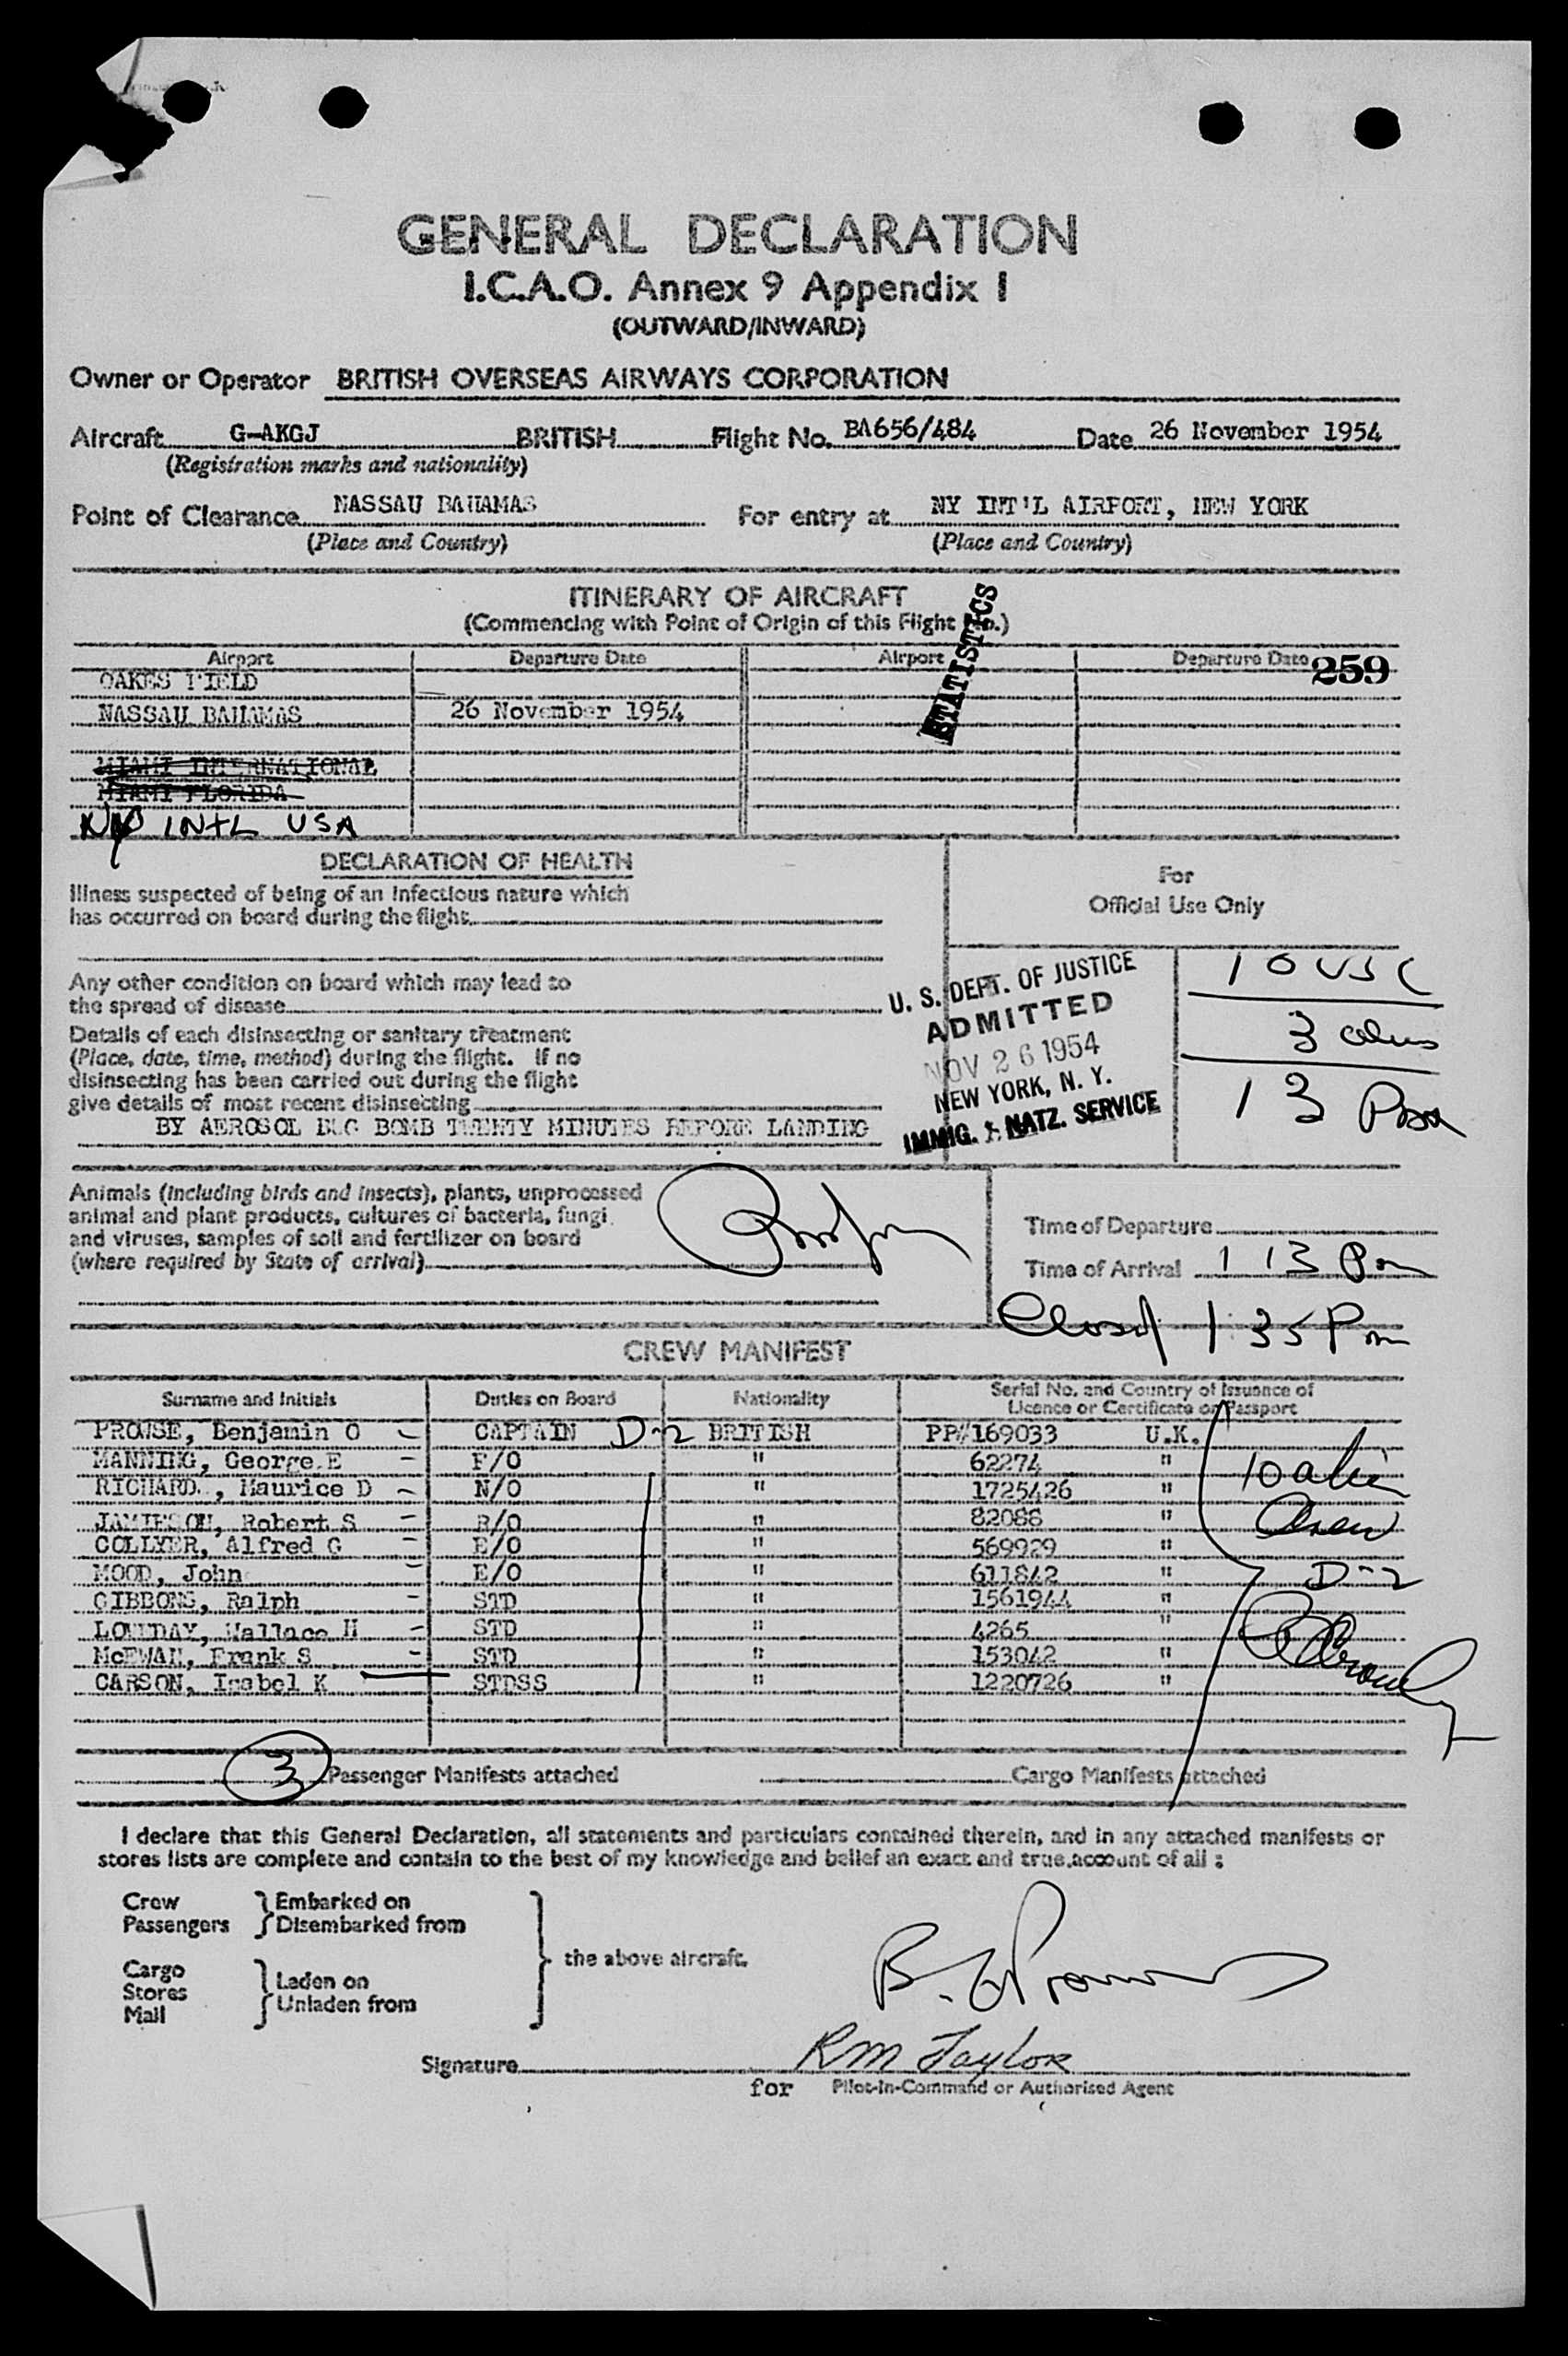 GENERAL DECLARATION
I.C.A.O. Annex 9 Appendix I
(OUTWARD/INWARD)
Owner or Operator BRITISH OVERSEAS AIRWAYS CORPORATION
Aircraft G-AKGJ BRITISH Flight No. BA656/484 Date 26 November 1954
(Registration marks and nationality)
Point of Clearance NASSAU BAHAMAS For entry at NY INT'L AIRPORT, NEW YORK
(Place and Country) (Place and Country)
ITINERARY OF AIRCRAFT
(Commencing with Point of Origin of this Flight
STATISTICS
Airport Departure Date Airport Departure Date 259
OAKES FIELD
NASSAU BAHAMAS 26 November 1954
MIAMI INTERNATIONAL
MIAMI FLORIDA
NY INTL USA
DECLARATION OF HEALTH
Illness suspected of being of an infectious nature which
has occurred on board during the flight
For
Official Use Only
Any other condition on board which may lead to
the spread of disease
Details of each disinsecting or sanitary treatment
(Place, date, time, method) during the flight. If no
disinsecting has been carried out during the flight
give details of most recent disinsecting
BY AEROSOL BUG BOMB TWENTY MINUTES BEFORE LANDING
U. S. DEPT. OF JUSTICE
ADMITTED
NOV 26 1954
NEW YORK, N. Y.
IMMIG. & NATZ. SERVICE
10 USC
3 aliens
13
Animals (including birds and insects), plants, unprocessed
animal and plant products, cultures of bacteria, fungi
and viruses, samples of soil and fertilizer on board
(where required by State of arrival)
Time of Departure
Time of Arrival 1 13 Pm
Closed 1:35 Pm
CREW MANIFEST
Surname and Initials Duties on Board Nationality Serial No. and Country of Issuance of
Licence or Certificate or Passport
PROWSE, Benjamin O - CAPTAIN D-2 BRITISH PP#169033 U.K.
MANNING, George E - F/O " 62274 "
RICHARD , Maurice D - N/O " 1725426 "
JAMIESON, Robert S - R/O " 82088 "
COLLYER, Alfred G - E/O " 569929 "
MOOD, John - E/O " 611842 "
GIBBONS, Ralph - STD " 1561944 "
LOVEDAY, Wallace H - STD " 4265 "
McEWAN, Frank S - STD " 153042 "
CARSON, Isabel K STDSS " 1220726 "
10 alien
Crew
D-2
3 Passenger Manifests attached Cargo Manifests attached
I declare that this General Declaration, all statements and particulars contained therein, and in any attached manifests or
stores lists are complete and contain to the best of my knowledge and belief an exact and true account of all :
Crew
Passengers
Embarked on
Disembarked from
Cargo
Stores
Mail
Laden on
Unladen from
the above aircraft.
Signature RM Taylor
for Pilot-in-Command or Authorised Agent